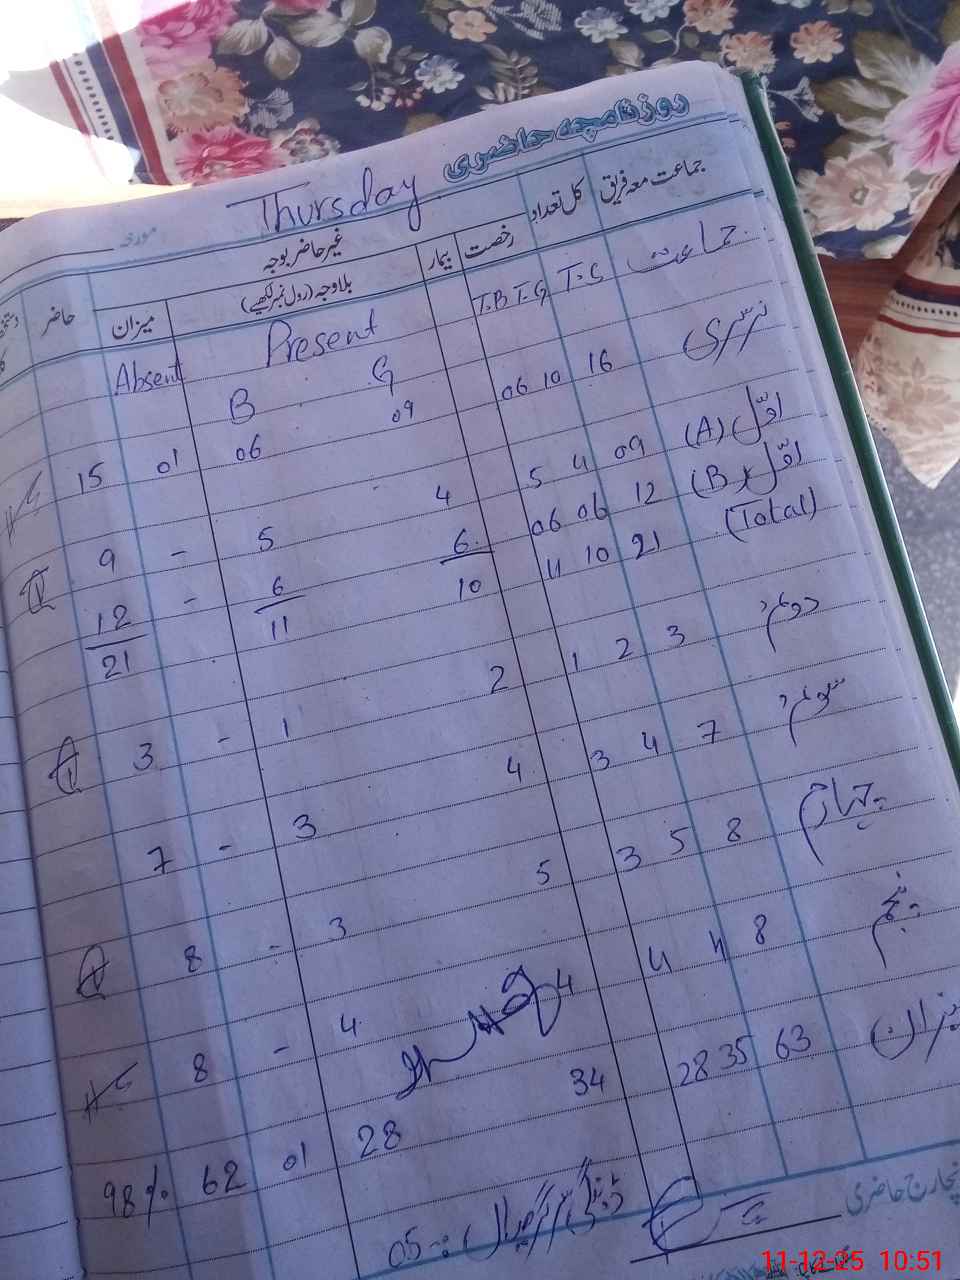 روزنامچہ حاضری
Thursday مورخہ
جماعت معہ فریق کل تعداد رخصت بیمار غیر حاضر بوجہ حاضر
بلاوجہ (رول نمبر لکھیے) میزان
جماعت T.G T.B T.G Present Absent
B G
نرسری 16 10 06 09 06 01 15
اوّل (A) 09 4 5 4 5 - 9
اوّل (B) 12 06 06 6 6 - 12
(Total) 21 10 11 10 11 21
دوئم 3 2 1 2 1 - 3
سوئم 7 4 3 4 3 - 7
چہارم 8 5 3 5 3 - 8
پنجم 8 4 4 4 4 - 8
میزان 63 35 28 34 28 01 62 98%
05
انچارج حاضری
11-12-25 10:51